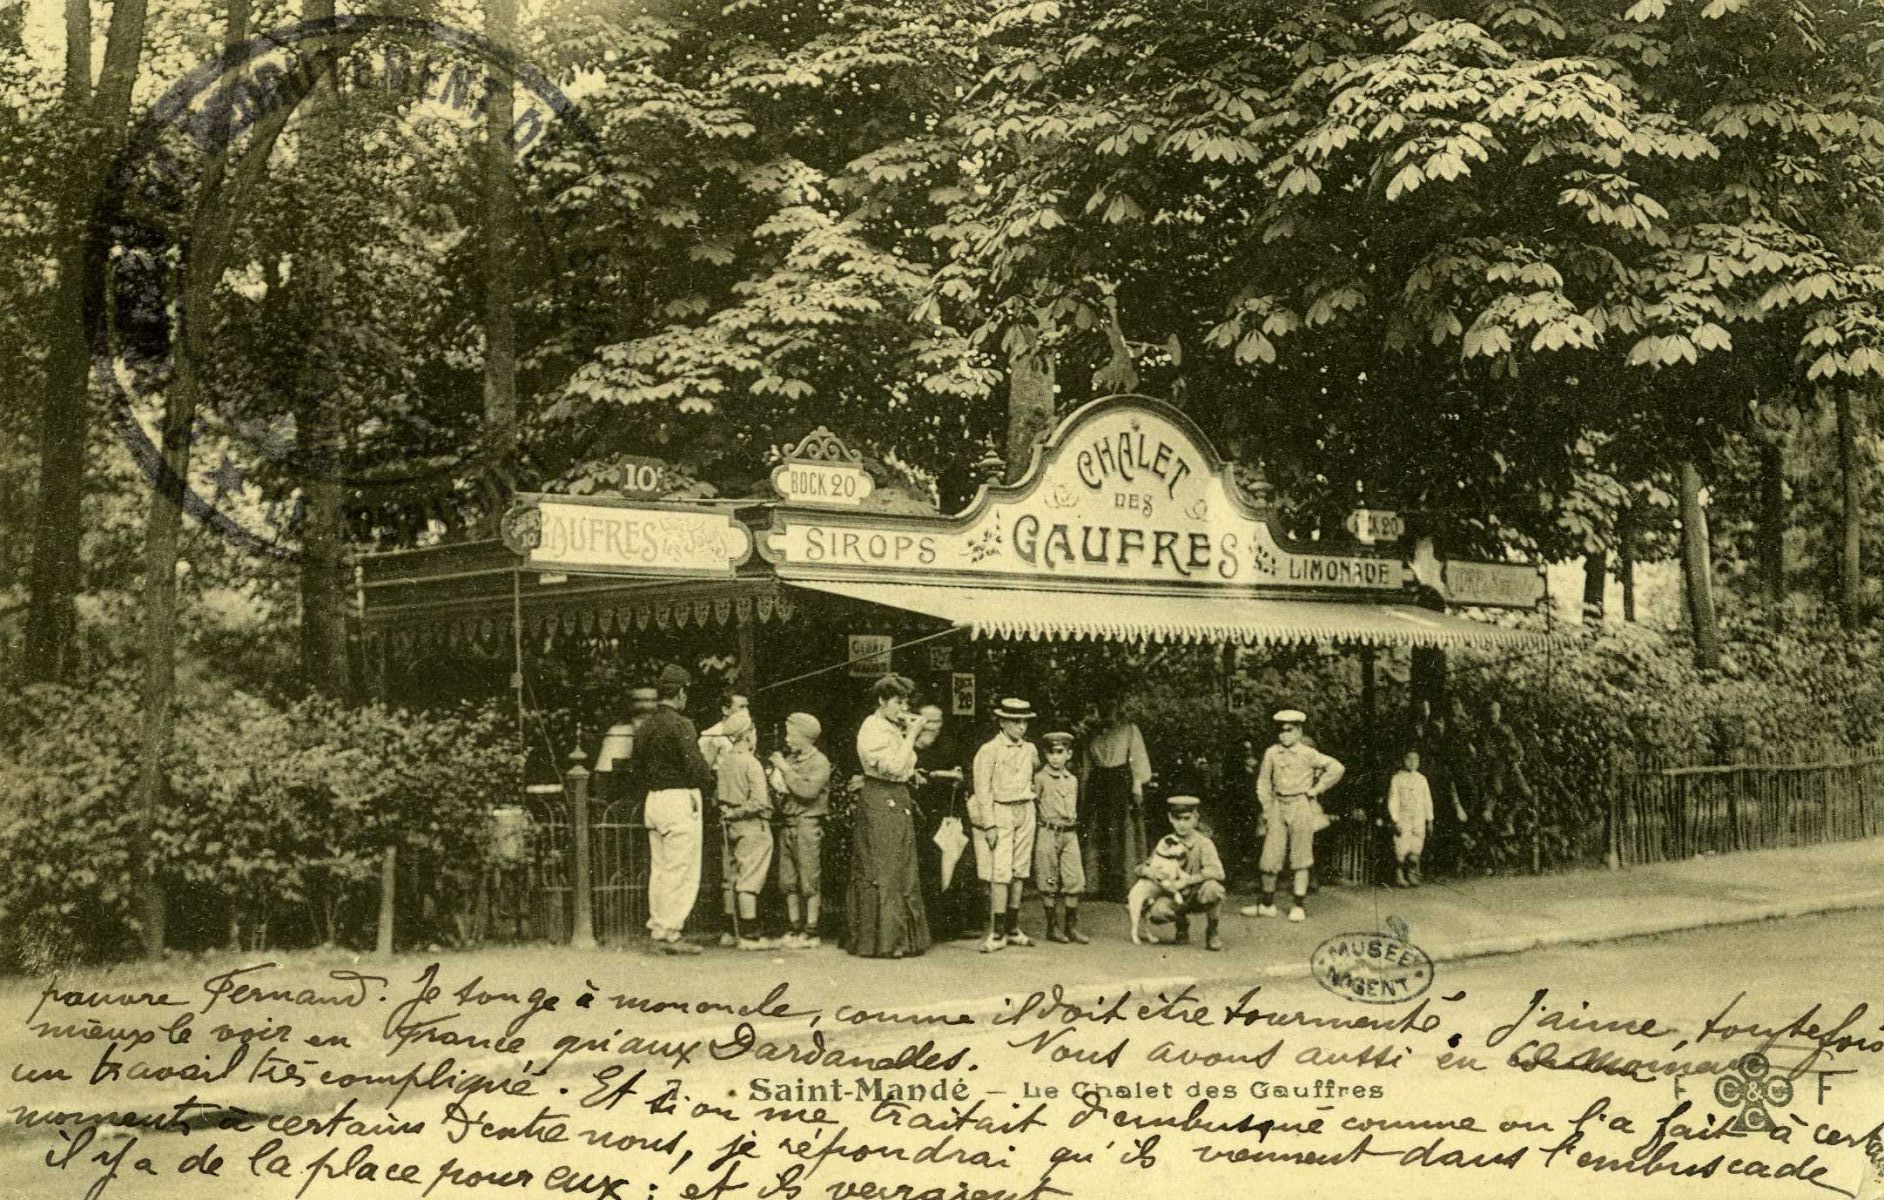 10c
BOCK 20c
GAUFRES
SIROPS
CHALET
DES
GAUFRES
LIMONADE
MUSÉE
NOGENT
pauvre Fernand. Je songe à mon oncle, comme il doit être tourmenté. J'aime, toutefois
mieux le voir en France qu'aux Dardanelles. Nous avons aussi en
un travail très compliqué. Et si on me traitait d'embusqué comme on l'a fait à
Saint-Mandé – Le Chalet des Gauffres
C C & C C
F F
moments à certains d'entre nous, je répondrai qu'ils viennent dans l'embuscade
il y a de la place pour eux : et ils verraient